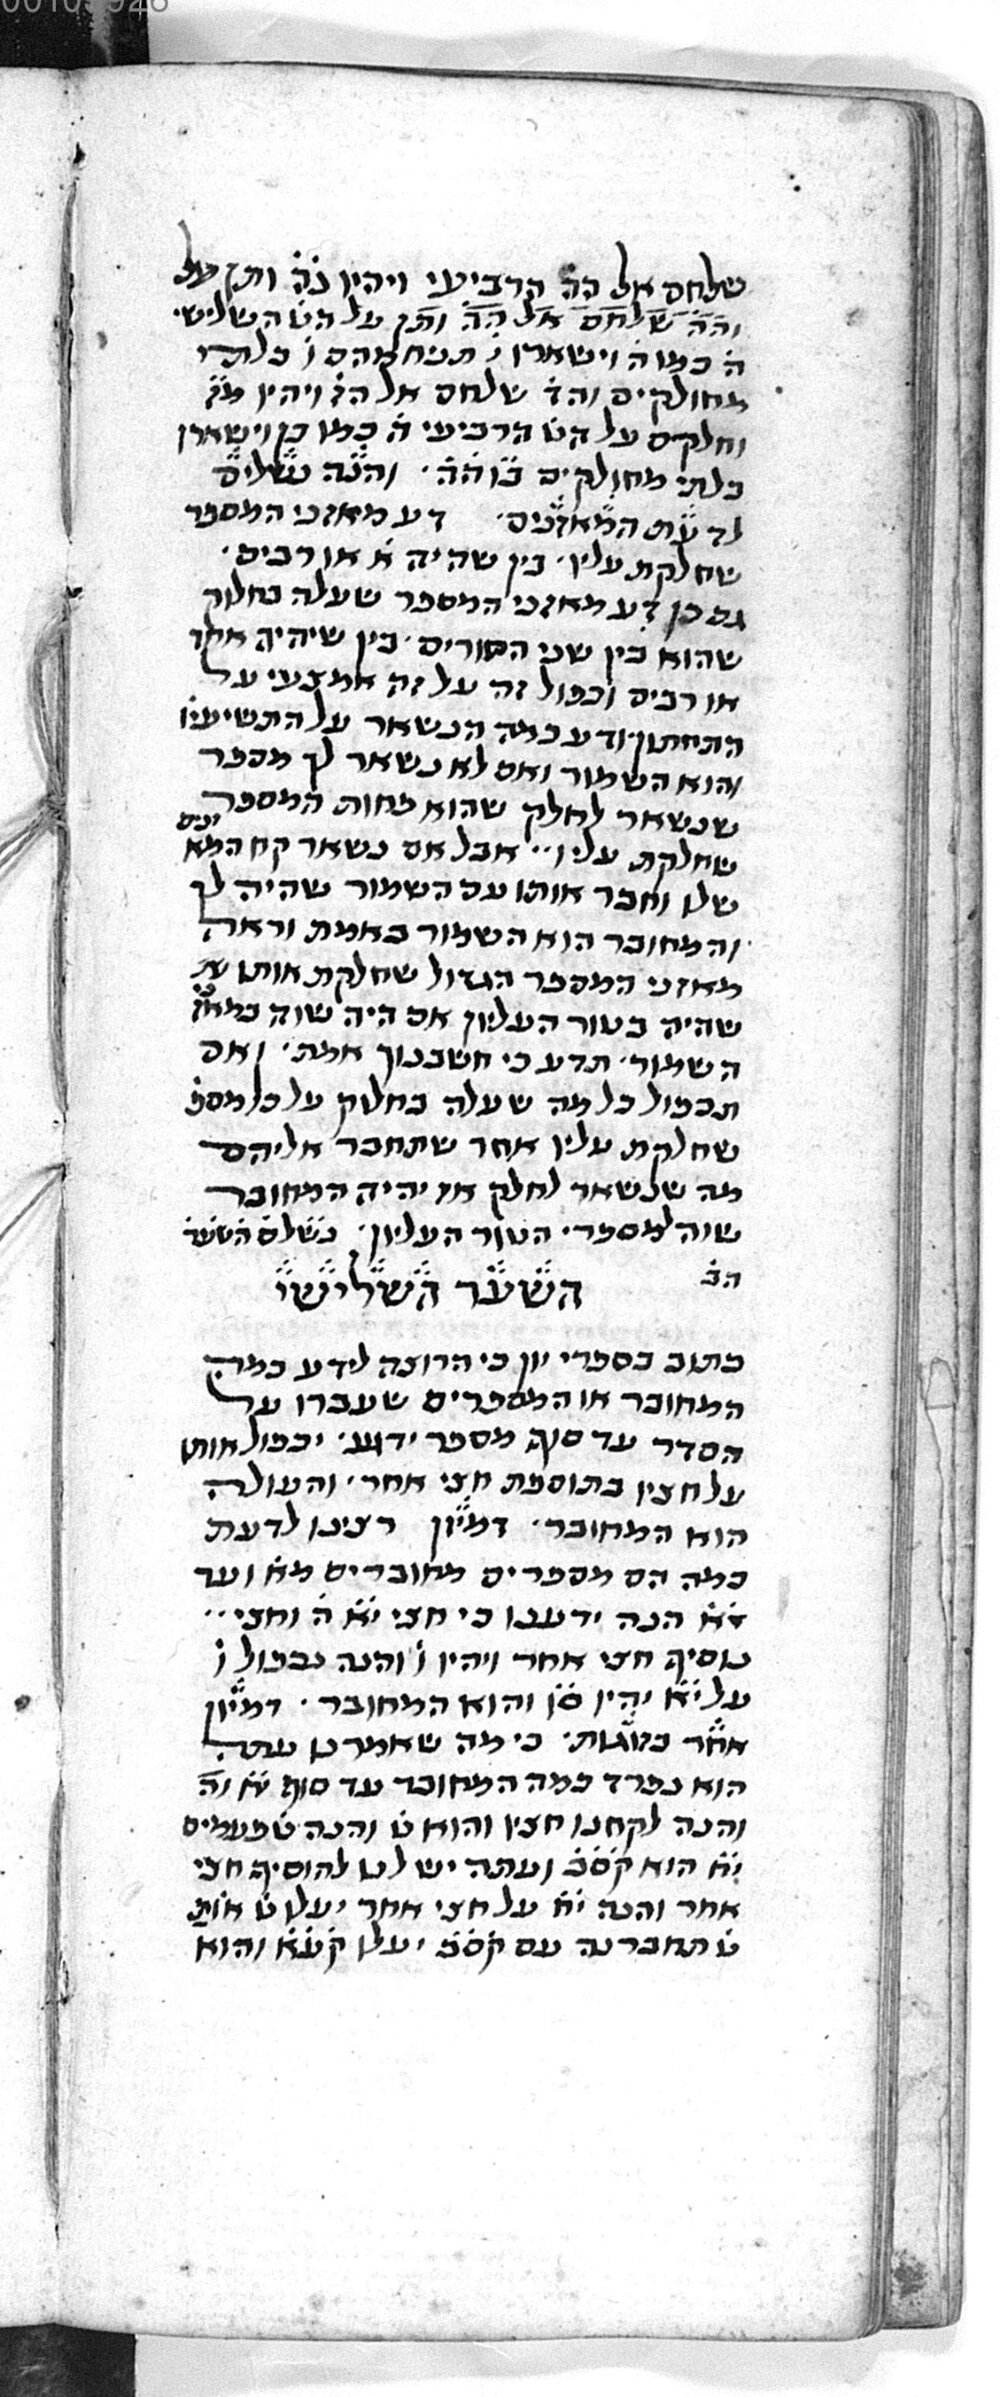 שלחם אל הה הרביעי ויהיו נה ותן על
והה שלחם אל הה ותן על הט השלישי
ה כמו ה וישארו י תנחם הם ו בלתי
מחולקים והד שלחם אל הז ויהיו מז
וחלקם על הט הרביעי ה כמו כן וישארו
בלתי מחולקים ב והה והנה נשלים
לדעת המאזנים דע מאזני המספר
שחלקת עליו בין שהיה א או רבים
גם כן דע מאזני המספר שעלה בחלוק
שהוא בין שני הטורים בין שיהיה אחד
או רבים וכפול זה על זה אמצעי על
התחתון ודע כמה הנשאר על התשיעיו
והוא השמור ואם לא נשאר לך מספר
שנשאר לחלק שהוא פחות המספר
שחלקת עליו אבל אם נשאר קח המאזנים
שלו וחבר אותו עם השמור שהיה לך
והמחובר הוא השמור באמת וראה
מאזני המספר הגדול שחלקת אותו עת
שהיה בטור העליון אם היה שוה במאז
השמור תדע כי חשבונך אמת ואם
תכפול כל מה שעלה בחלוק על כל מספ
שחלקת עליו אחר שתחבר אליהם
מה שנשאר לחלק אז יהיה המחובר
שוה למספר הטור העליון נשלם השער
הב
השער השלישי
כתוב בספרי יון כי הרוצה לידע כמה
המחובר או המספרים שעברו על
הסדר עד סוף מספר ידוע יכפול אותו
על חציו בתוספת חצי אחד והעולה
הוא המחובר דמיון רצינו לדעת
כמה הם מספרים מחוברים מא ועד
יא הנה ידענו כי חצי יא ה וחצי
נוסיף חצי אחד ויהיו ו והנה נכפול ו
על יא יהיו סו והוא המחובר דמיון
אחר בזוגות כי מה שאמרנו עתה
הוא נפרד כמה המחובר עד סוף יח והה
והנה לקחנו חציו והוא ט והנה ט פעמים
יח הוא קסב ועתה יש לנו להוסיף חצי
אחד והנה יח על חצי אחד יעלו ט אות
ט תחברנה עם קסב יעלו קעא והוא